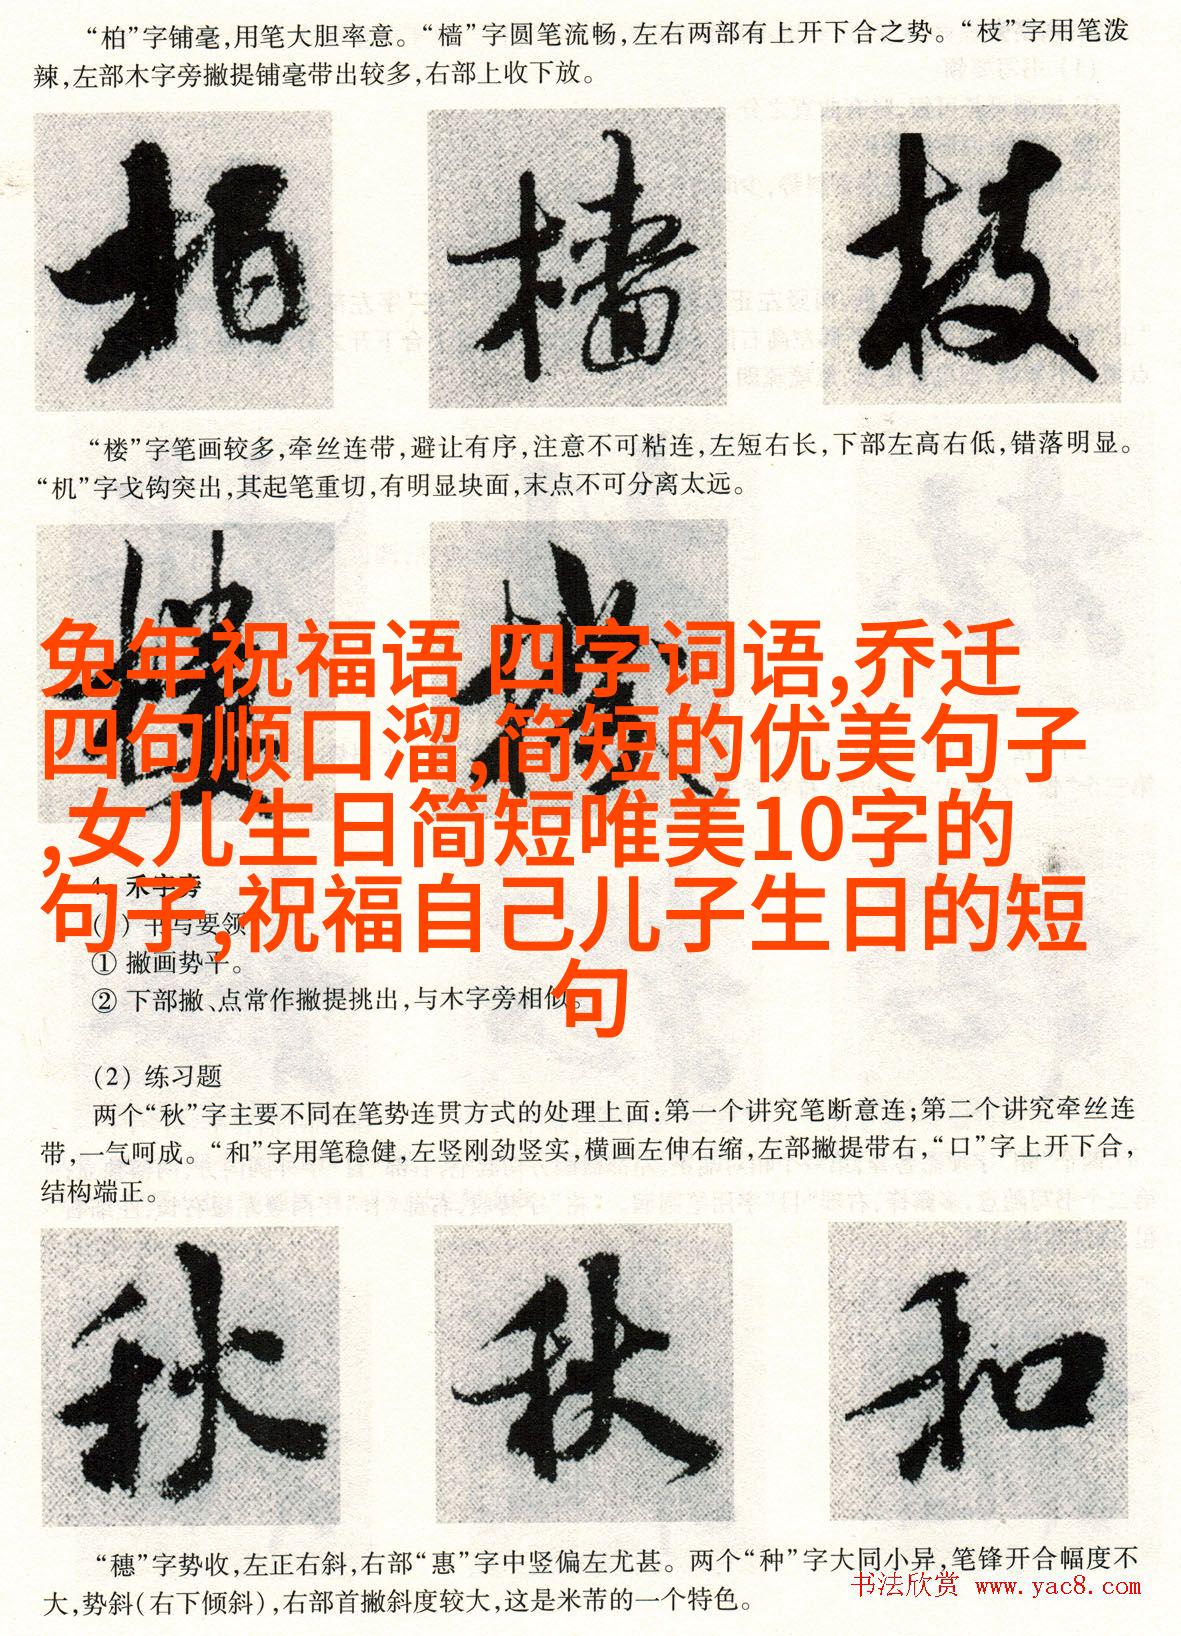 “柏”字铺毫,用笔大胆率意。“樯”字圆笔流畅,左右两部有上开下合之势。“枝”字用笔泼
辣,左部木字旁撇提铺毫带出较多,右部上收下放。
柏 樯 枝
“楼”字笔画较多,牵丝连带,避让有序,注意不可粘连,左短右长,下部左高右低,错落明显。
“机”字戈钩突出,其起笔重切,有明显块面,末点不可分离太远。
兔年祝福语 四字词语,乔迁
四句顺口溜,简短的优美句子
,女儿生日简短唯美10字的
句子,祝福自己儿子生日的短
句
禾字旁
书写要领
① 撇画势平。
② 下部撇、点常作撇提挑出,与木字旁相似。
(2) 练习题
两个“秋”字主要不同在笔势连贯方式的处理上面:第一个讲究笔断意连;第二个讲究牵丝连
带,一气呵成。“和”字用笔稳健,左竖刚劲竖实,横画左伸右缩,左部撇提带右,“口”字上开下合,
结构端正。
秋 秋 和
“穗”字势收,左正右斜,右部“惠”字中竖偏左尤甚。两个“种”字大同小异,笔锋开合幅度不
大,势斜(右下倾斜),右部首撇斜度较大,这是米芾的一个特色。
书法欣赏 www.yac8.com